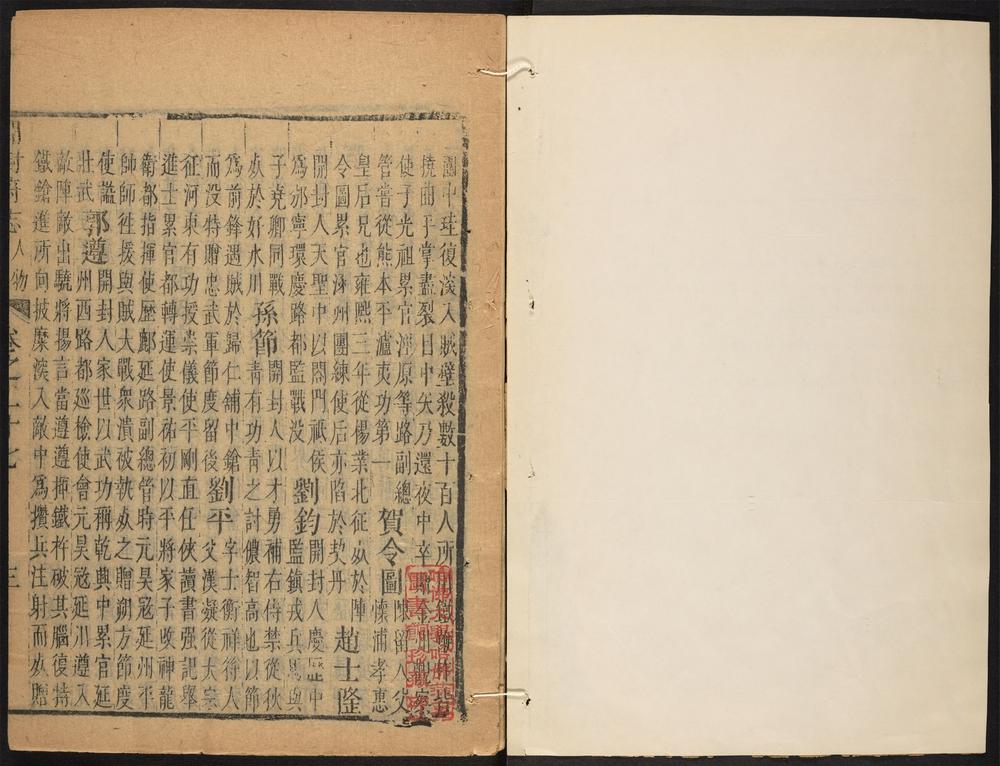 圍中珪復深入賊壁殺數十百人所
撓曲手掌盡裂目中矢乃還夜中卒
使子光祖累官涇原等路副總
管嘗從熊本平瀘夷功第一
賀令圖
陳留人父
懷浦孝惠
皇后兄也雍熙三年從楊業北征歿於陣
令圖累官涿州團練使后亦陷於契丹
趙士隆
開封人天聖中以閤門祗候
為邠寧環慶路都監戰没
劉鈞
開封人慶歷中
監鎮戎兵馬與
子堯卿同戰
歿於好水川
孫節
開封人以才勇補右侍禁從狄
青有功青之討儂智高也以節
為前鋒遇賊於歸仁舖中鎗
而没特贈忠武軍節度留後
劉平
字士衡祥符人
父漢凝從太宗
征河東有功授崇儀使平剛直任俠讀書强記舉
進士累官都轉運使景祐初以平將家子改神龍
衛都指揮使歷鄜延路副總管時元昊寇延州平
師師徃援與賊大戰衆潰被執歿之贈朔方節度
使謚
壯武
郭遵
開封人家世以武功稱乾興中累官延
州西路都巡檢使會元昊寇延川遵入
敵陣敵出驍將揚言當遵遵揮鐵杵破其腦復特
鐵鎗進所向披靡深入敵中為攢兵注射而歿贈
開封府志人物 卷之二十七 三